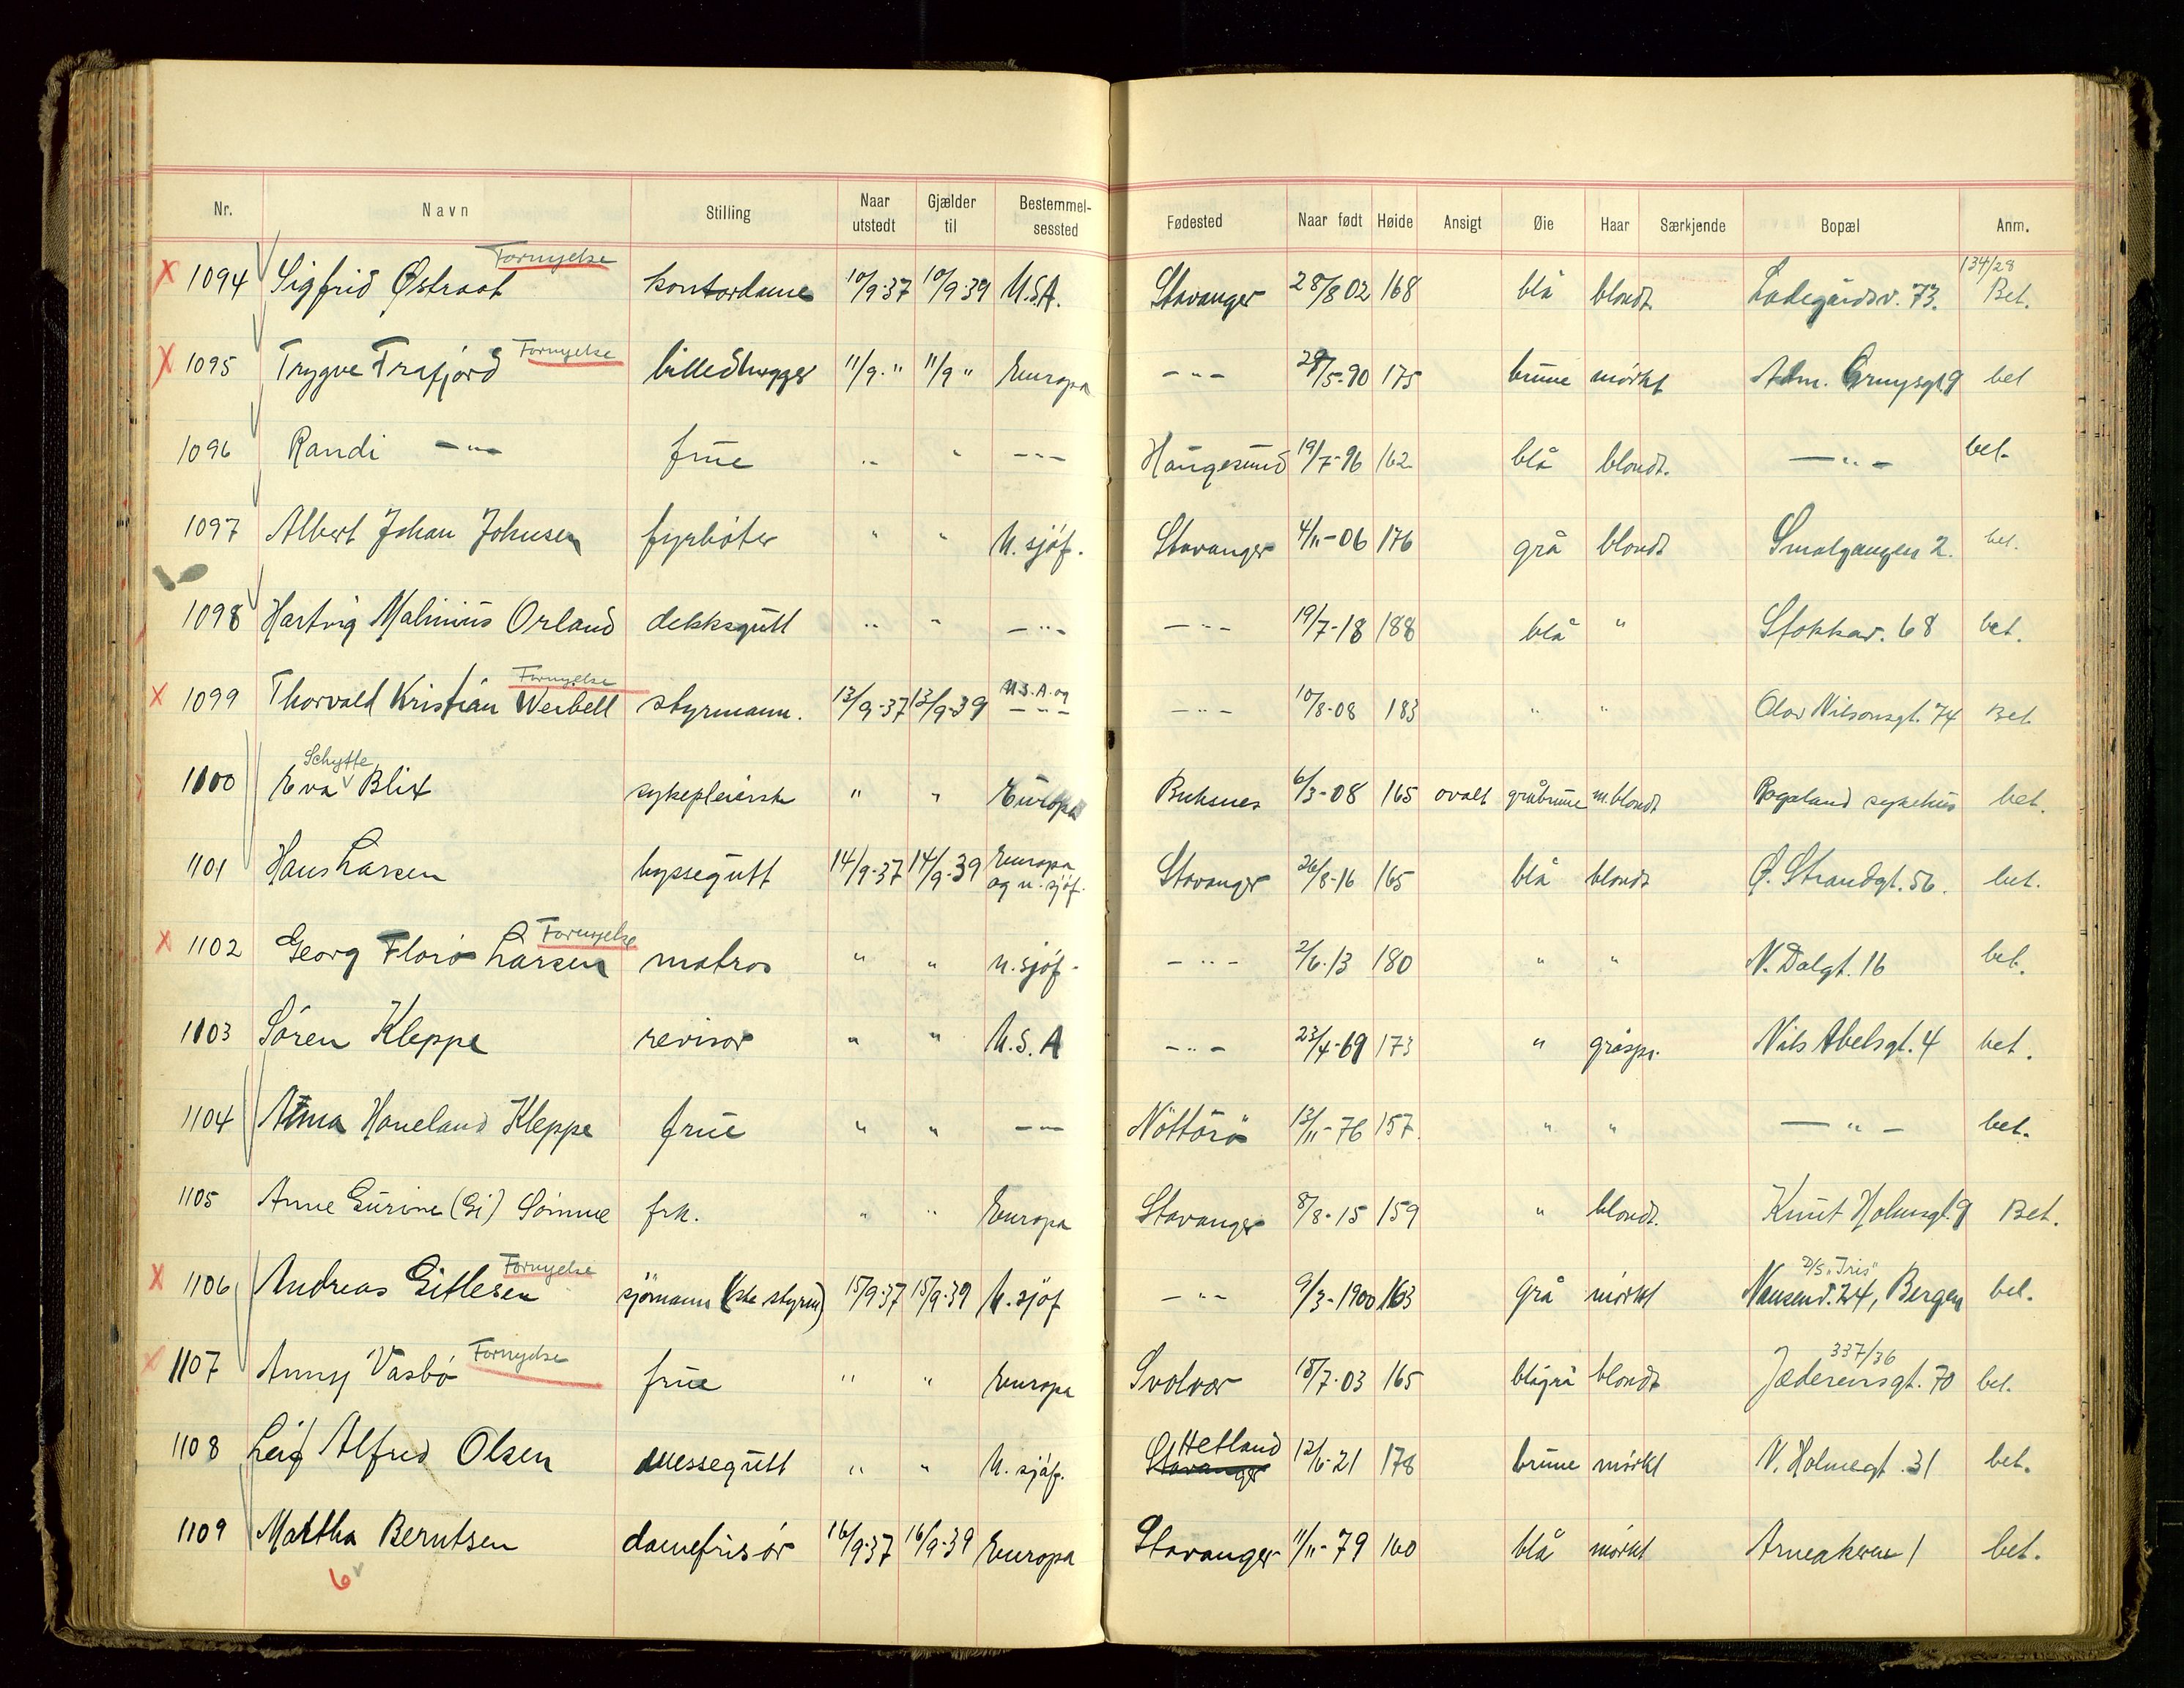 Nr. Navn Stilling Naar utstedt Gjælder til Bestemmel-sessted Fødested Naar født Høide Ansigt Øie Haar Særkjende Bopæl Anm.
Fornyelse 134/28
X 1094 Sigfrid Østraat kontordame 10/9-37 10/9-39 U.S.A. Stavanger 28/8 02 168 blå blondt Ladegårdsv. 73. Bet.
Fornyelse
X 1095 Trygve Frafjord billedhugger 11/9-" 11/9 " Europa -"- 29/5-90 175 brune mørkt Adm. Cruysgt 9 bet
1096 Randi -"- frue " " -"- Haugesund 19/7-96 162 blå blondt. -"- bet.
1097 Albert Johan Johnsen fyrbøter " " U. sjøf. Stavanger 4/11-06 176 grå blondt Smalgangen 2. bet.
1098 Hartvig Malinius Orland dekksgutt " " -"- -"- 19/7-18 188 blå " Stokkav. 68 bet.
Fornyelse
X 1099 Thorvald Kristian Weibell styrmann. 13/9-37 13/9-39 U.S.A. og -"- -"- 10/8-08 183 " " Olav Nilsonsgt. 74 Bet.
Schytte
1100 Eva Blix sykepleierske " " Europa Buksnes 6/3-08 165 ovalt gråbrune m.blondt Rogaland sykehus bet.
1101 Hans Larsen byssegutt 14/9-37 14/9-39 Europa og u. sjøf. Stavanger 26/8-16 165 blå blondt Ø. Strandgt. 56. bet.
Fornyelse
X 1102 Georg Florø Larsen matros " " u. sjøf. -"- 2/6-13 180 " " N. Dalgt. 16 bet.
1103 Søren Kleppe revisor " " U.S.A -"- 23/4-69 173 " gråspr. Nils Abelsgt. 4 bet.
1104 Anna Haneland Kleppe frue " " -"- Nöttörö 13/11-76 157. " " -"- bet.
1105 Anne Gurine (Gi) Sømme frk. " " Europa Stavanger 8/8-15 159 " blondt. Knut Holmsgt. 9 Bet.
Fornyelse D/S "Iris"
X 1106 Andreas Gitlesen sjømann (1ste styrm) 15/9-37 15/9-39 U. sjøf -"- 9/3-1900 163 grå mørkt Nansenv. 24, Bergen bet.
Fornyelse 337/36
X 1107 Anny Vasbø frue " " Europa Svolvær 18/7-03 165 blågrå blondt Jæderensgt. 70 bet.
1108 Leif Alfred Olsen messegutt " " U. sjøf. Hetland Stavanger 12/6-21 178 brune mørkt V. Holmegt. 31 bet.
1109 Martha Berntsen damefrisør 16/9-37 16/9-39 Europa Stavanger 11/11-79 160 blå mørkt Arneakeren 1 bet.
6